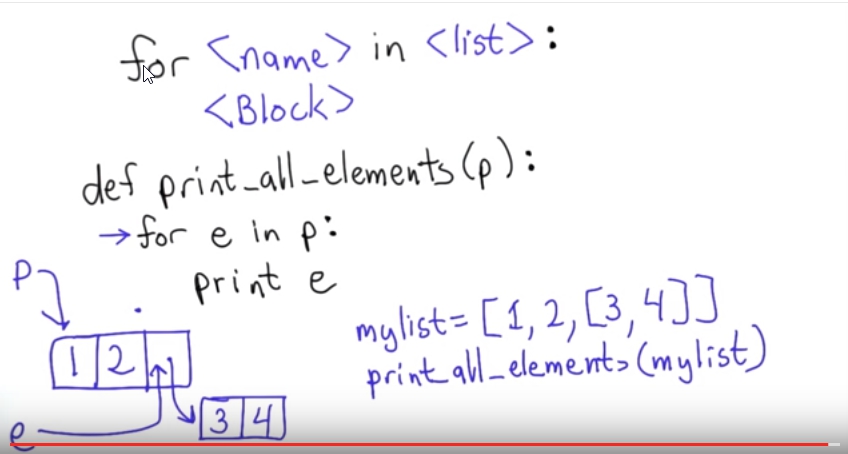 for <name> in <list>:
<Block>
def print_all_elements(p):
→for e in p:
print e
p
mylist= [1, 2, [3, 4]]
print_all_elements(mylist)
1 2
3 4
e